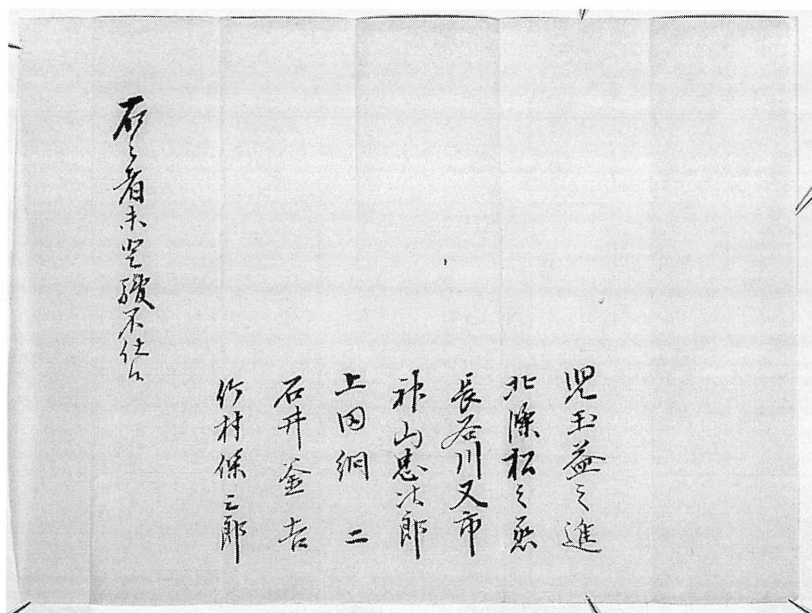 児玉益之進
北條松之丞
長谷川又市
神山忠次郎
上田絅二
石井金吉
竹村保三郎
右之者未登殿不仕候